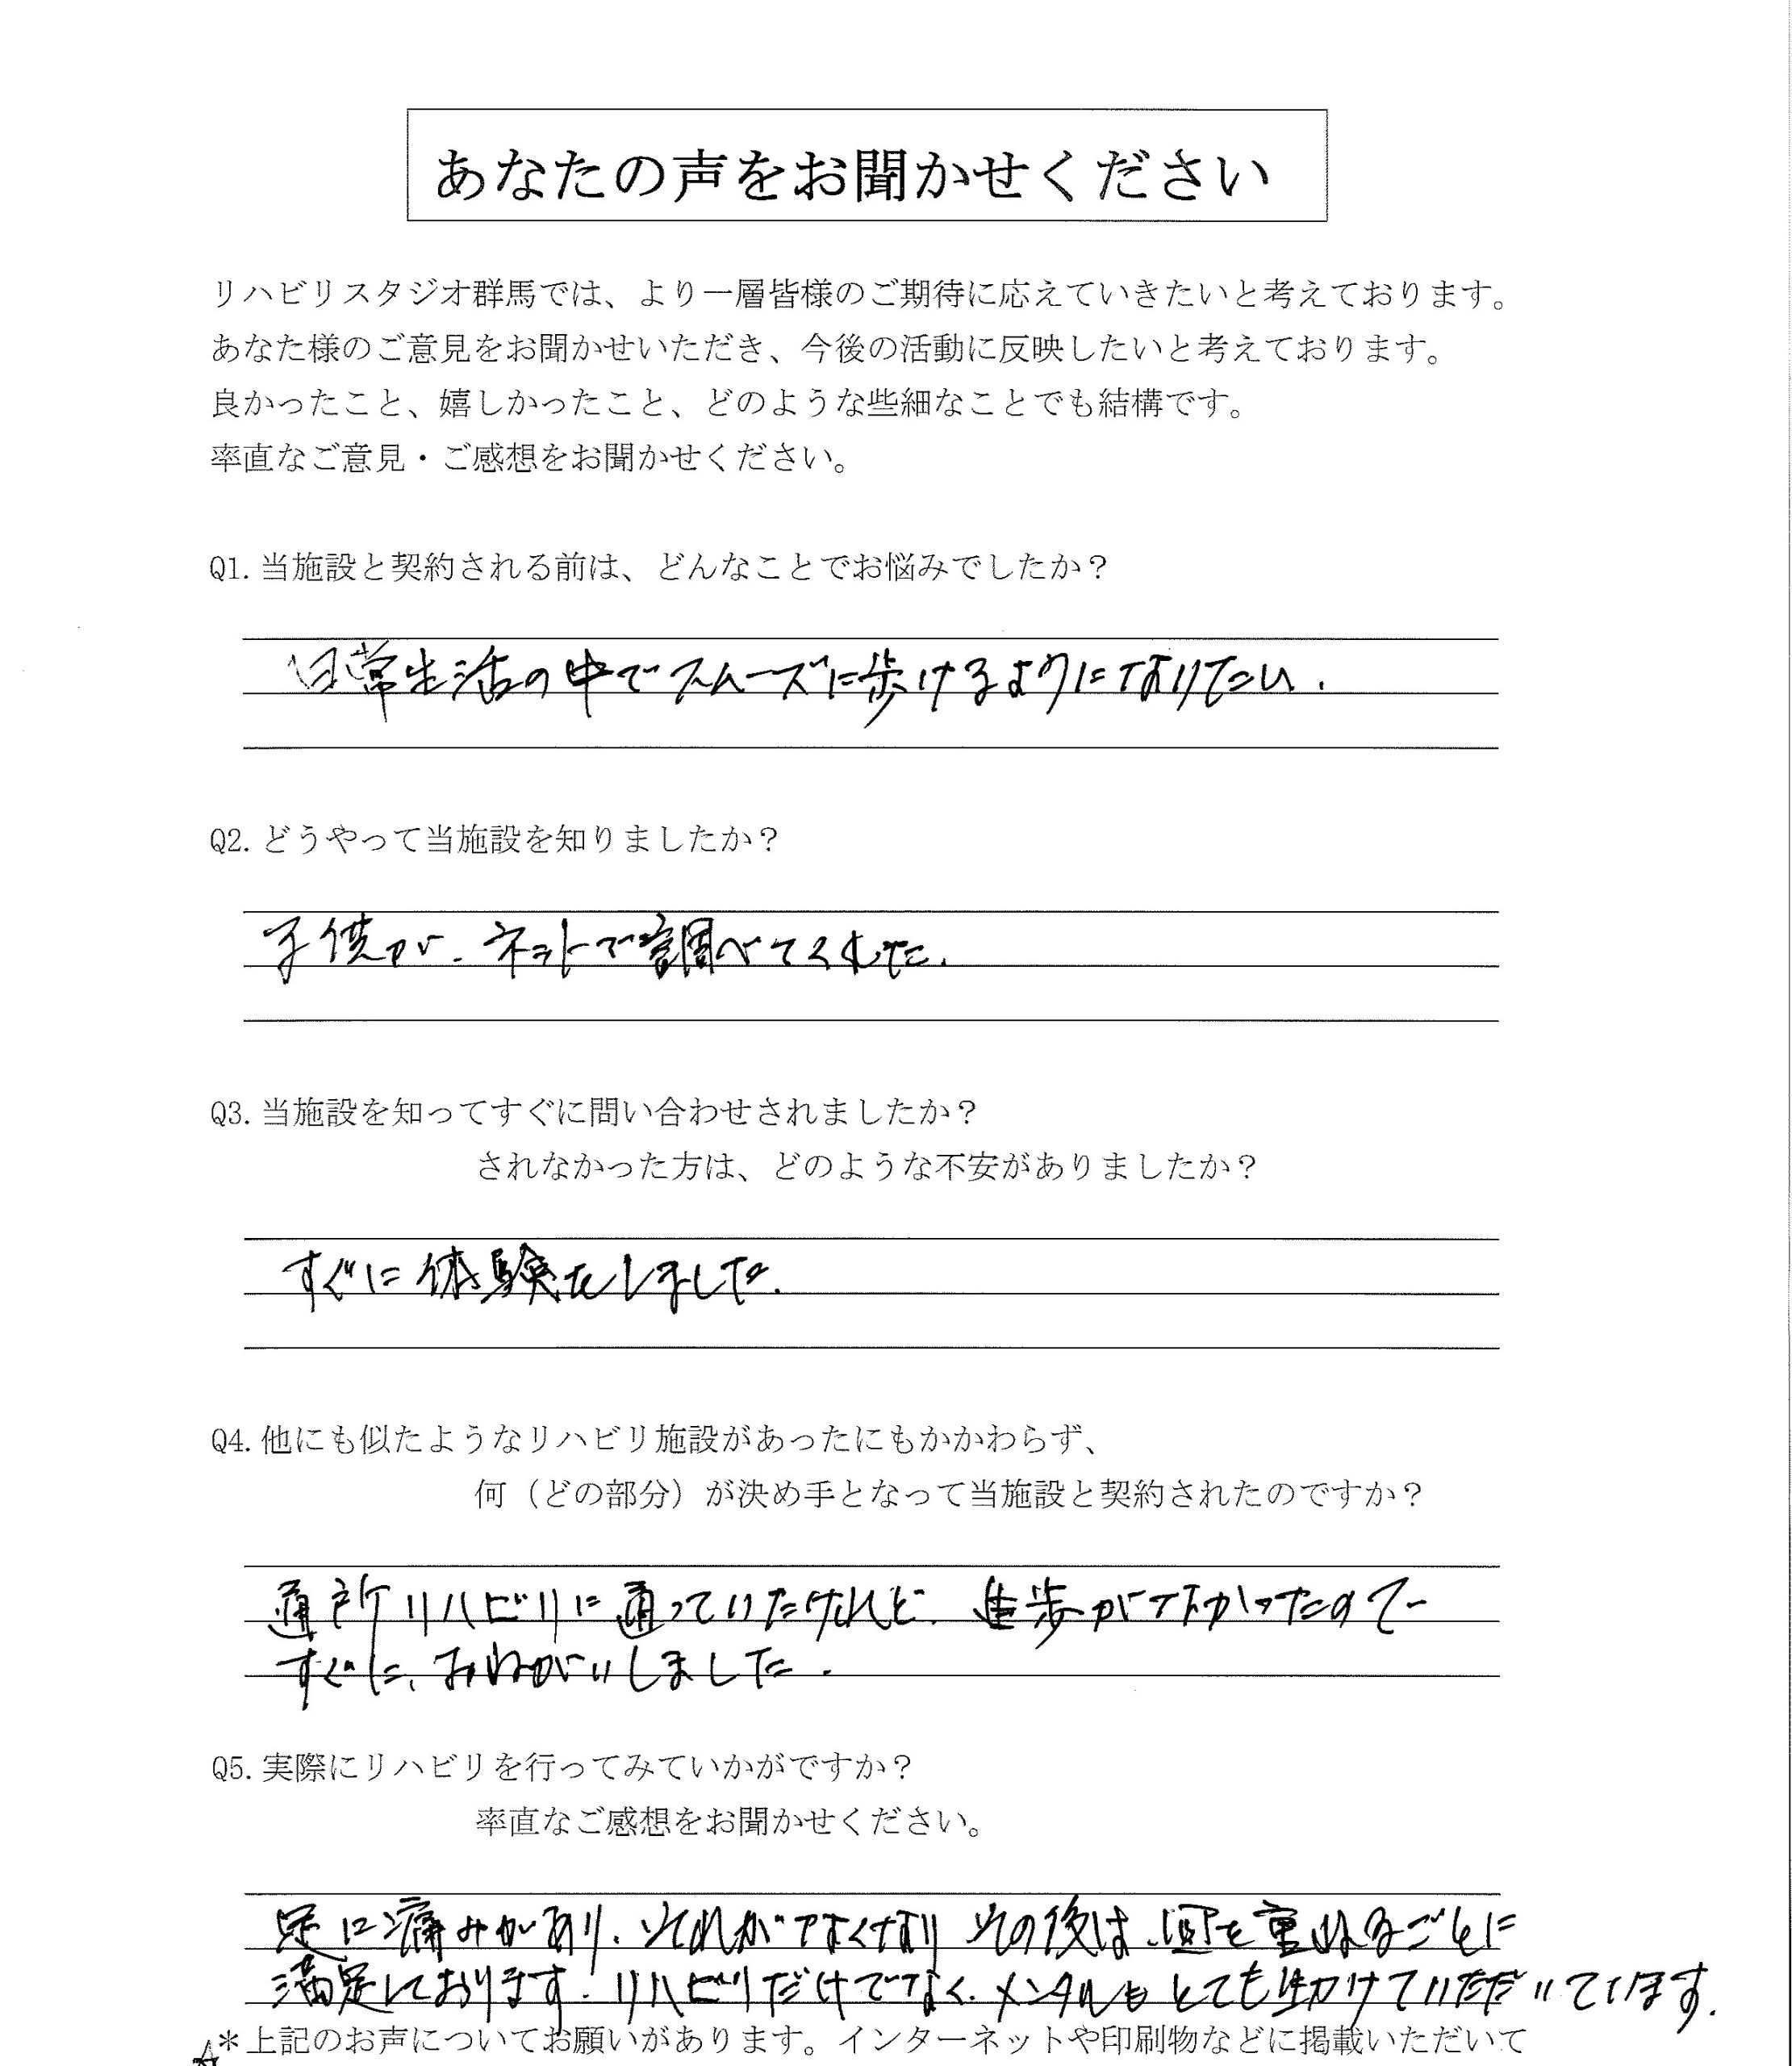 あなたの声をお聞かせください
リハビリスタジオ群馬では、より一層皆様のご期待に応えていきたいと考えております。
あなた様のご意見をお聞かせいただき、今後の活動に反映したいと考えております。
良かったこと、嬉しかったこと、どのような些細なことでも結構です。
率直なご意見・ご感想をお聞かせください。
Q1.当施設と契約される前は、どんなことでお悩みでしたか？
日常生活の中でスムーズに歩けるようになりたい.
Q2.どうやって当施設を知りましたか？
子供が、ネットで調べてくれた.
Q3.当施設を知ってすぐに問い合わせされましたか？
されなかった方は、どのような不安がありましたか？
すぐに体験をしました.
Q4.他にも似たようなリハビリ施設があったにもかかわらず、
何（どの部分）が決め手となって当施設と契約されたのですか？
通所リハビリに通っていたけれど、進歩がなかったので
すぐに、おねがいしました.
Q5.実際にリハビリを行ってみていかがですか？
率直なご感想をお聞かせください。
足に痛みがあり、それがなくなり その後は、回を重ねるごとに
満足しております. リハビリだけでなく、メンタルもとても助けていただいています.
＊上記のお声についてお願いがあります。インターネットや印刷物などに掲載いただいて